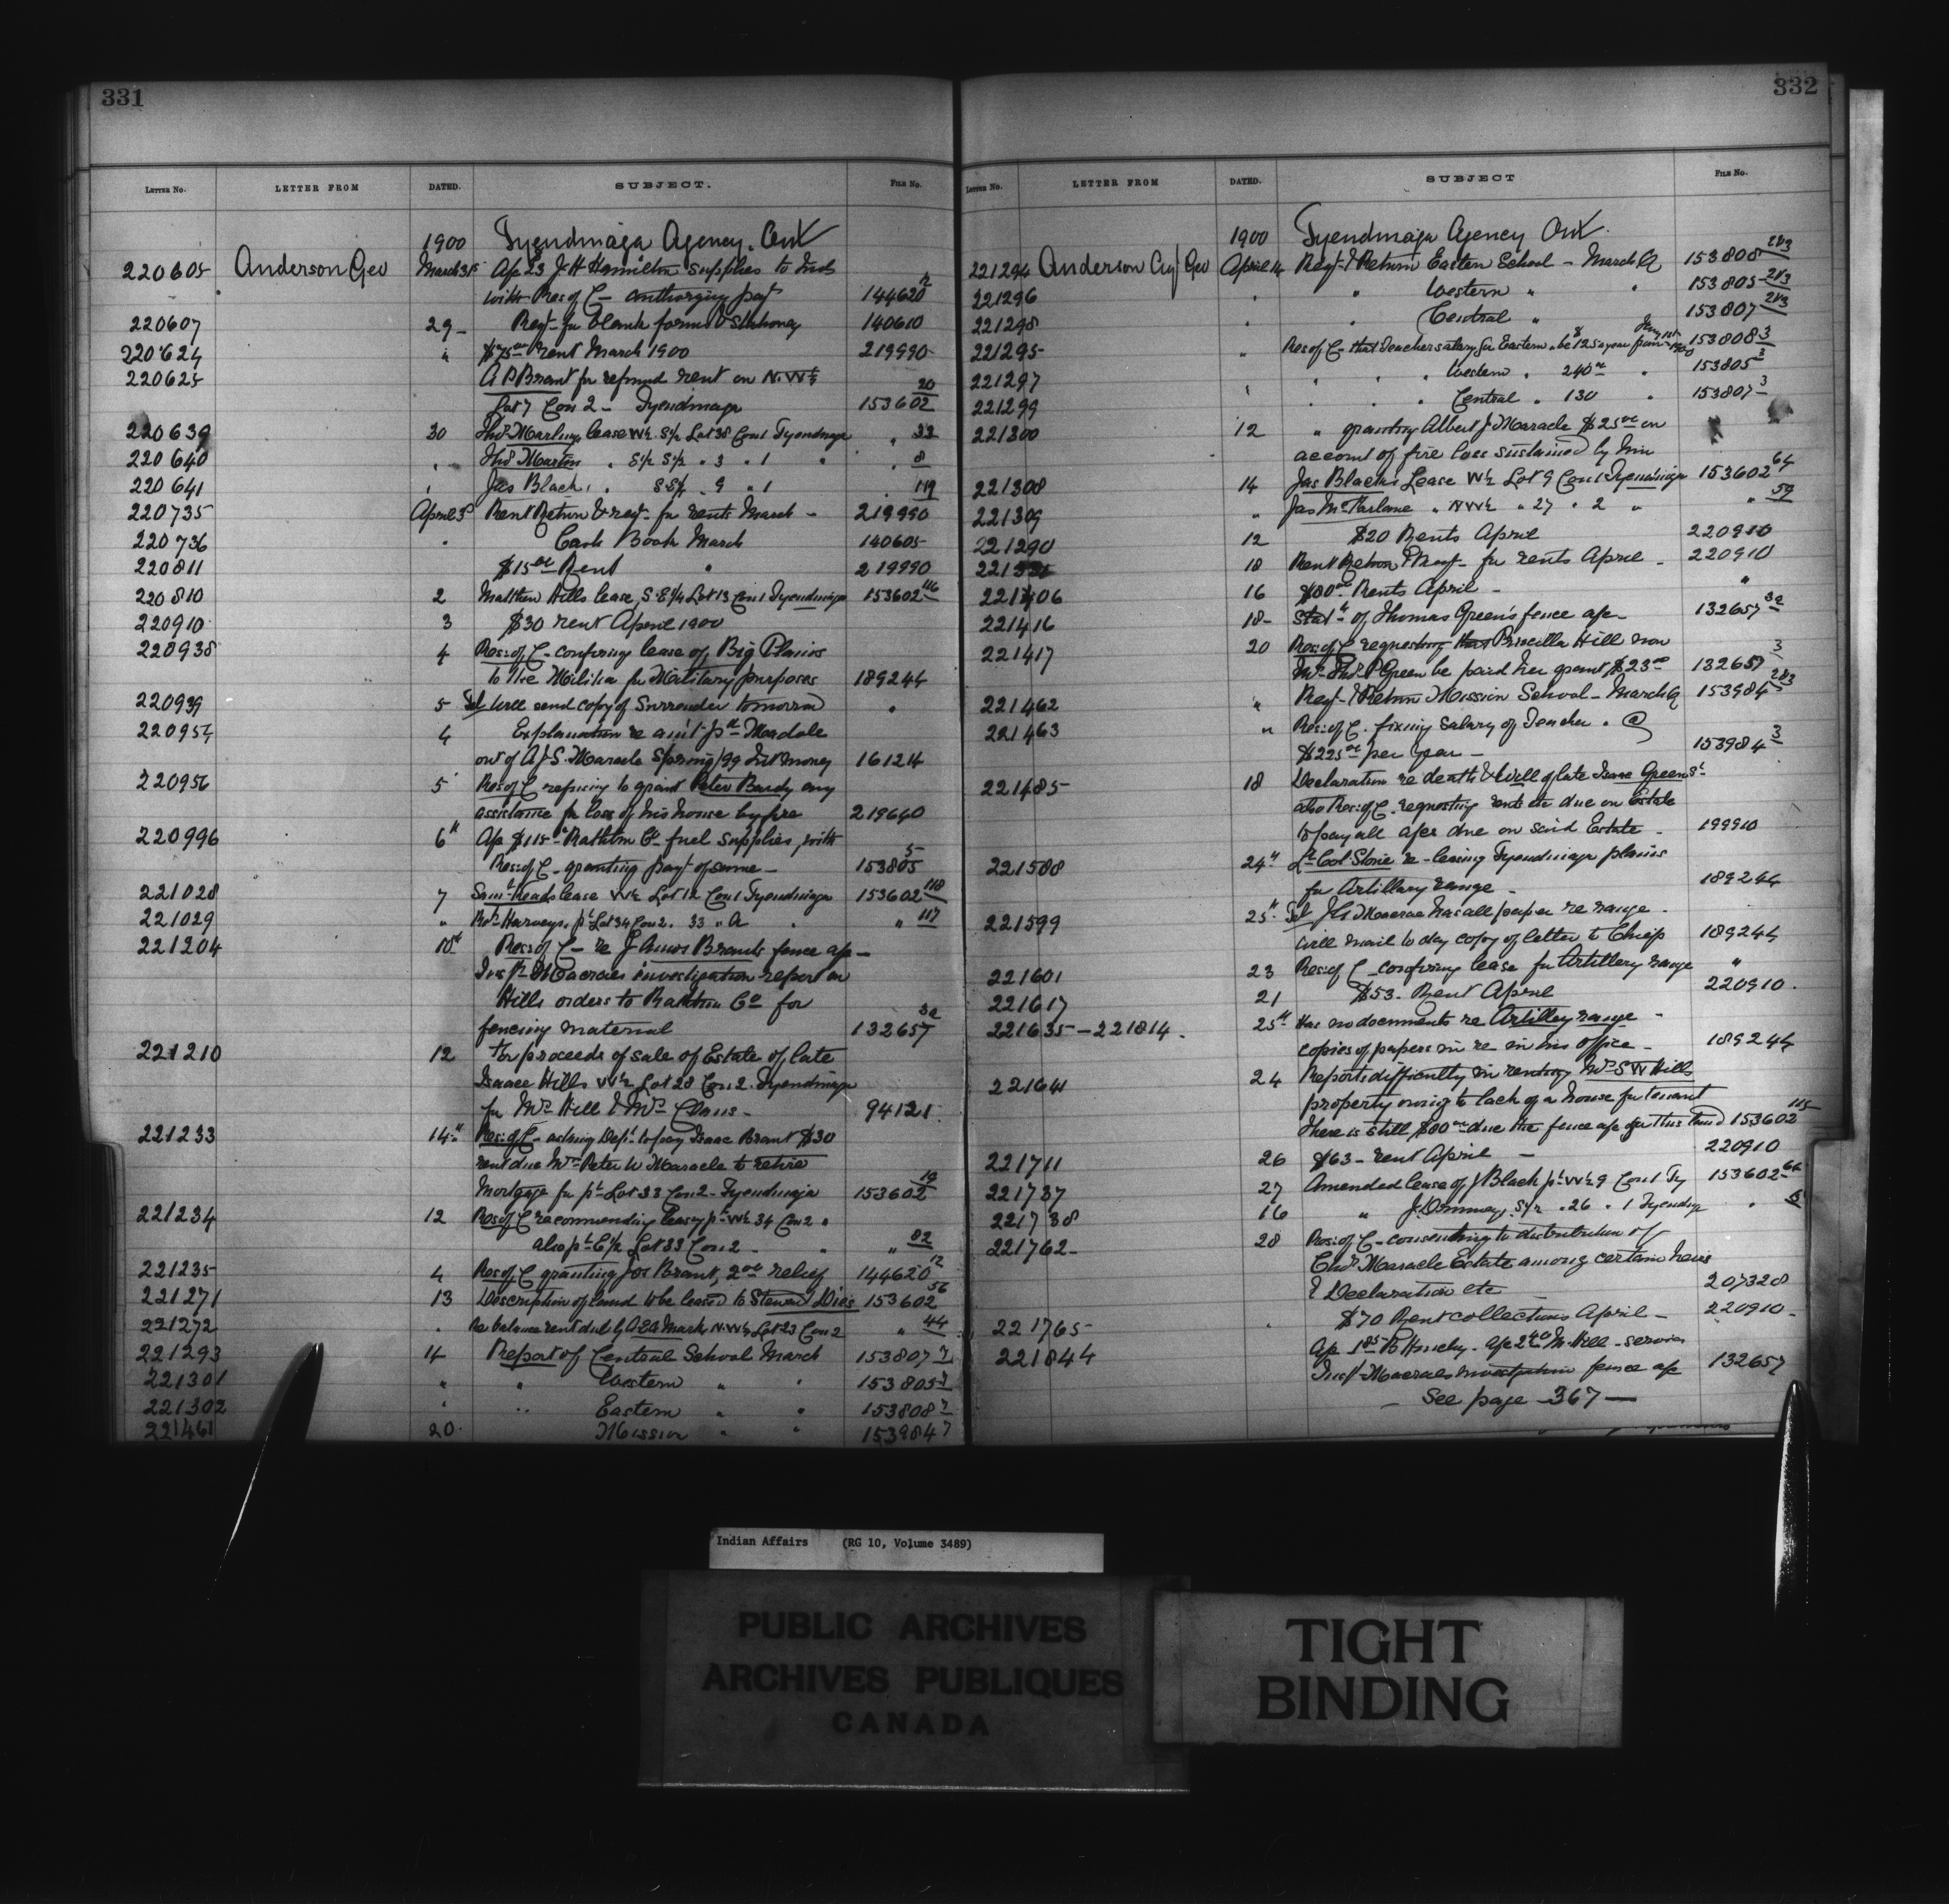 331
LETTER No. LETTER FROM DATED. SUBJECT. FILE No.
1900 Tyendinaga Agency. Ont
220605 Anderson Geo March 31st Ap 23 J. H. Hamilton supplies to Inds
with Res of C - authorizing payt 144620 2
220607 29 - Reqt for blank forms & Stationery 140610
220624 " $75 00 rent March 1900 219990
220625 A P Brant for refund rent on N.W¼
Lot 7 Con 2 - Tyendinaga 153602 20
220639 30 lease W½ S½ Lot 38 Con 1 Tyendinaga " 33
220640 " Thos Martin " S½ S½ " 3 " 1 " " 8
220641 " Jas Black " S½ " 9 " 1 " 119
220735 April 3d Rent Return & reqt for rents March - 219990
220736 " Cash Book March 140605
220811 $15 00 Rent " 219990
220810 2 Matthew Hills lease, S.E¼ Lot 13 Con 1 Tyendinaga 153602 116
220910 3 $30 rent April 1900
220938 4 Res: of C - confirming lease of Big Plains
to the Militia for Military purposes 189244
220939 5 Tel Will send copy of Surrender tomorrow "
220954 4 Explanation re am't pd
out of A J S. Maracle Spring/99 Int money 161214
220956 5 Res of C refusing to grant Peter Bardy any
assistance for loss of his house by fire 219640
220996 6th Ap $115 Rathbun Co fuel supplies, with
Res: of C - granting payt of same - 153805 5
221028 7 Saml Heads lease W½ Lot 12 Con 1 Tyendinaga 153602 118
221029 " Harveys. pt Lot 34 Con 2. 33 " A " " 117
221204 10th Res: of C - re J. Amos Brants fence ap -
Inspr Macraes investigation report on
Hills orders to Rathbun Co for
fencing material 132657 3a
221210 12 For proceeds of sale of Estate of late
Isaac Hills W½ Lot 28 Con 2. Tyendinaga
for Mrs Hill & Mrs Claus - 94121
221233 14th Res: of C - asking Dept to pay Isaac Brant $30
rent due Mrs Peter W Maracle to retire
Mortgage for pt Lot 33 Con 2 - Tyendinaga 153602 19
221234 12 Res of C recommending leasg pt W½ 34 Con 2 "
also pt E½ Lot 33 Con 2 - " " 82
221235 4 Res of C granting Jos Brant, 2 00 relief 144620 12
221271 13 Description of land to be leased to Steward Dies 153602 56
221272 " Re balance rent due by Mark N.W¼ Lot 23 Con 2 " 44
221293 14 Report of Central School March 153807 7
221301 " " Western " " 153805 7
221302 " " Eastern " " 153808 7
221461 20 Mission " " 153984 7
332
LETTER No. LETTER FROM DATED. SUBJECT FILE No.
1900 Tyendinaga Agency Ont.
221294 Anderson Geo April 14 Reqt & Return Eastern School - March Q 153808 2&3
221296 " " Western " " 153805 2&3
221298 " " Central " 153807 2&3
221295 " Res of C that Teachers salary for Eastern S be 125 a year from Jany 1st 1900 153808 3
221297 " " " Western " 240 00 " 153805 3
221299 " " " Central " 130 " 153807 3
221300 12 " granting Albert J Maracle $25 00 on
account of fire loss sustained by him
221308 14 Jas Blacks Lease W½ Lot 9 Con 1 Tyendinaga 153602 64
221309 " Jas McFarlane " N W½ " 27 " 2 " " 59
221290 12 $20 Rents April 220910
18 Rent Return & Reqt - for rents April - 220910
221406 16 $80 00 Rents April - "
221416 18 - Stat't of Thomas Green's fence ap - 132657 3a
221417 20 Res: of C requesting that Priscilla Hill now
Mrs Thos P Green be paid her grant $23 00 132657 3
221462 " Reqt & Return Mission School - March Q 153984 2&3
221463 " Res: of C. fixing salary of Teacher. @
$225 00 per year - 153984 3
221485 18 Declaration re death & Will of late Isaac Green Sr
also Res: of C. requesting rents etc due on Estate
to pay all a/cs due on said Estate - 199910
221588 24th Lt Col Stone re - leasing Tyendinaga plains
for Artillery range - 189244
221599 25th Tel J. A Macrae has all paper re range -
will mail to day copy of letter to Chief 189244
221601 23 Res: of C - confirming lease for Artillery range "
221617 21 $53 - Rent April 220910.
221635 - 221814. 25th Has no documents re Artillery range -
copies of papers in re in his office - 189244
221641 24 Reports difficulty in renting Mrs S W Hills
property owing to lack of a house for tenant
there is still $80 00 due the fence a/c for this land 153602 115
221711 26 $63 - rent April - 220910
221737 27 Amended lease of J Black pt W½ 9 Con 1 Ty 153602 64
221738 16 " S½ " 26 " 1 Tyendin "
221762 - 28 Res: of C - consenting to distribution of
Maracle Estate among certain heirs
& Declaration etc - 207328
221765 - " $70 Rent collections April - 220910 -
221844 Hill - services
Inspr Macraes investigation fence a/c 132657
- See page - 367 -
Indian Affairs (RG 10, Volume 3489)
PUBLIC ARCHIVES
ARCHIVES PUBLIQUES
CANADA
TIGHT
BINDING